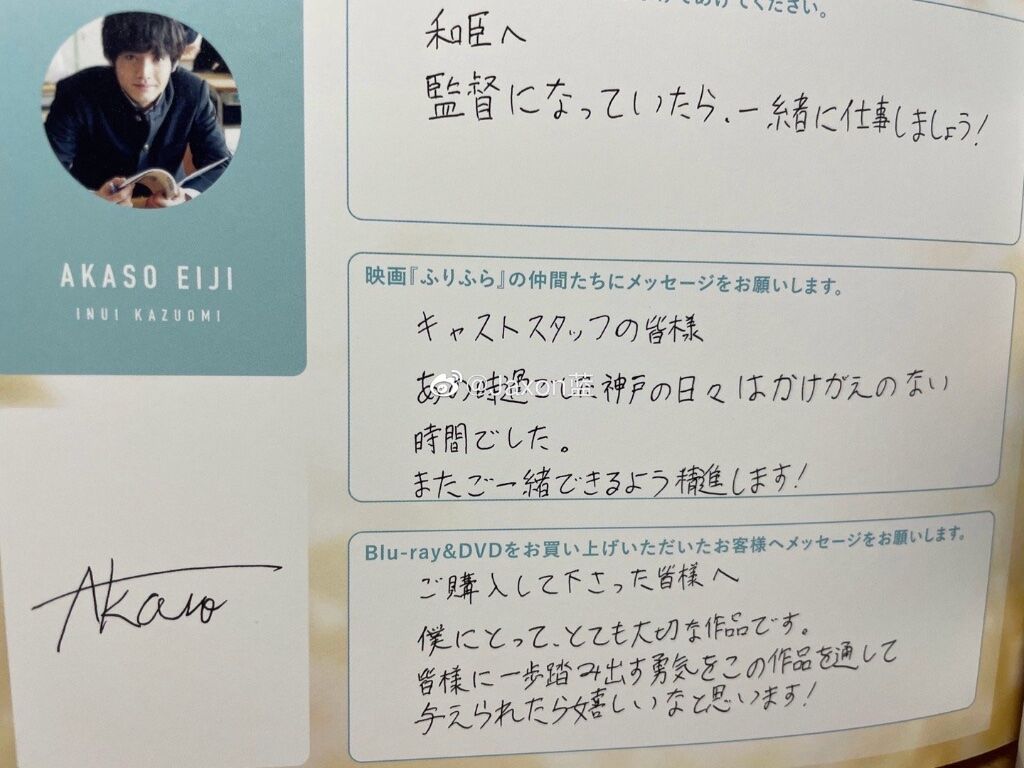 AKASO EIJI
INUI KAZUOMI
Akaso
てあげてください。
和臣へ
監督になっていたら、一緒に仕事しましょう!
映画『ふりふら』の仲間たちにメッセージをお願いします。
キャストスタッフの皆様
あの時過ごした神戸の日々はかけがえのない
時間でした。
またご一緒できるよう精進します!
@Jaxon蓝
Blu-ray&DVDをお買い上げいただいたお客様へメッセージをお願いします。
ご購入して下さった皆様へ
僕にとって、とても大切な作品です。
皆様に一歩踏み出す勇気をこの作品を通して
与えられたら嬉しいなと思います!